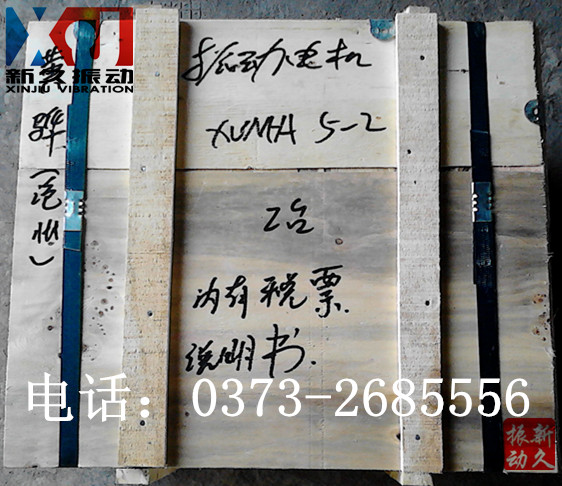 XJ
新久振动
XINJIU VIBRATION
振动电机
XUMA 5-2
2台
内有税票
说明书.
电话：0373-2685556
新久
振动